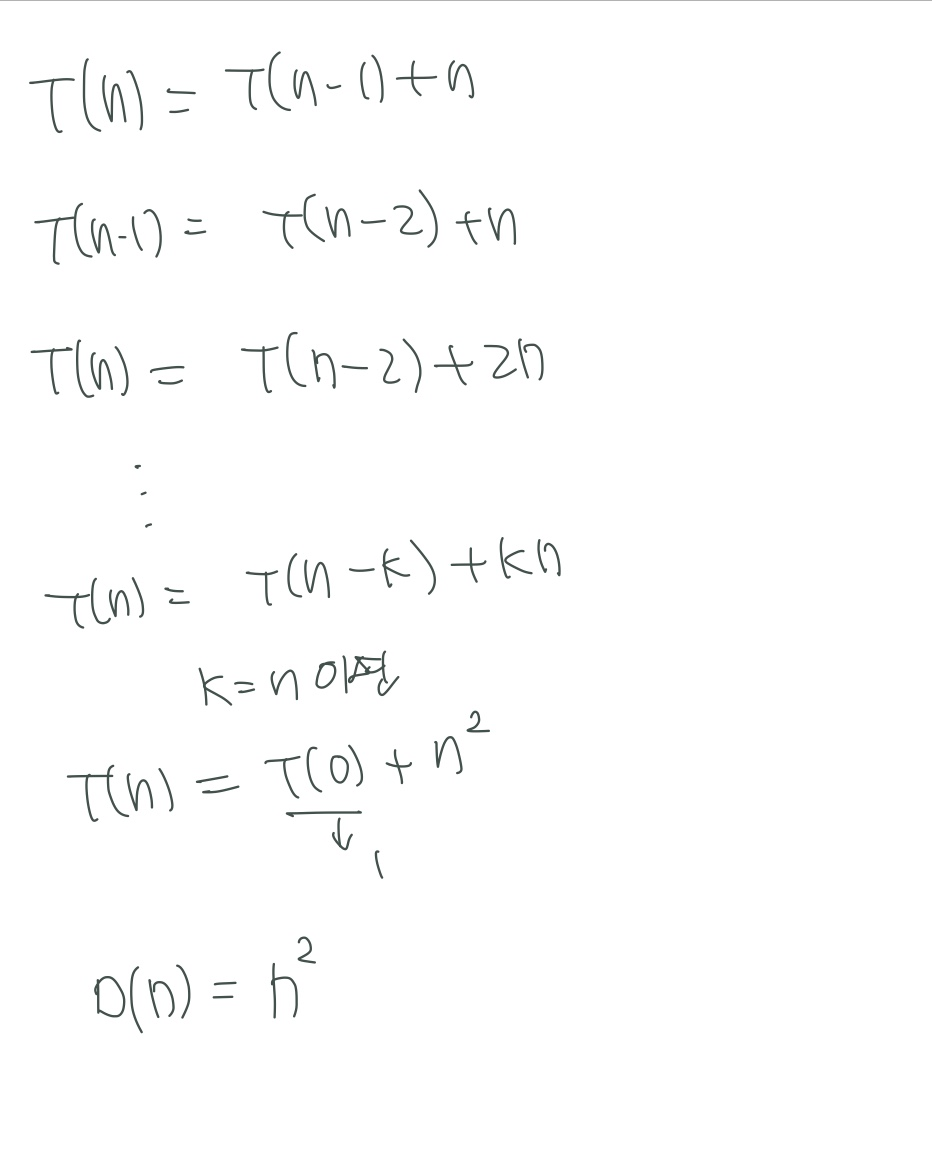 T(n) = T(n-1)+n
T(n-1) = T(n-2)+n
T(n) = T(n-2)+2n
⋮
T(n) = T(n-k)+kn
k=n
T(n) = T(0)+n²
↓ 1
O(n) = n²